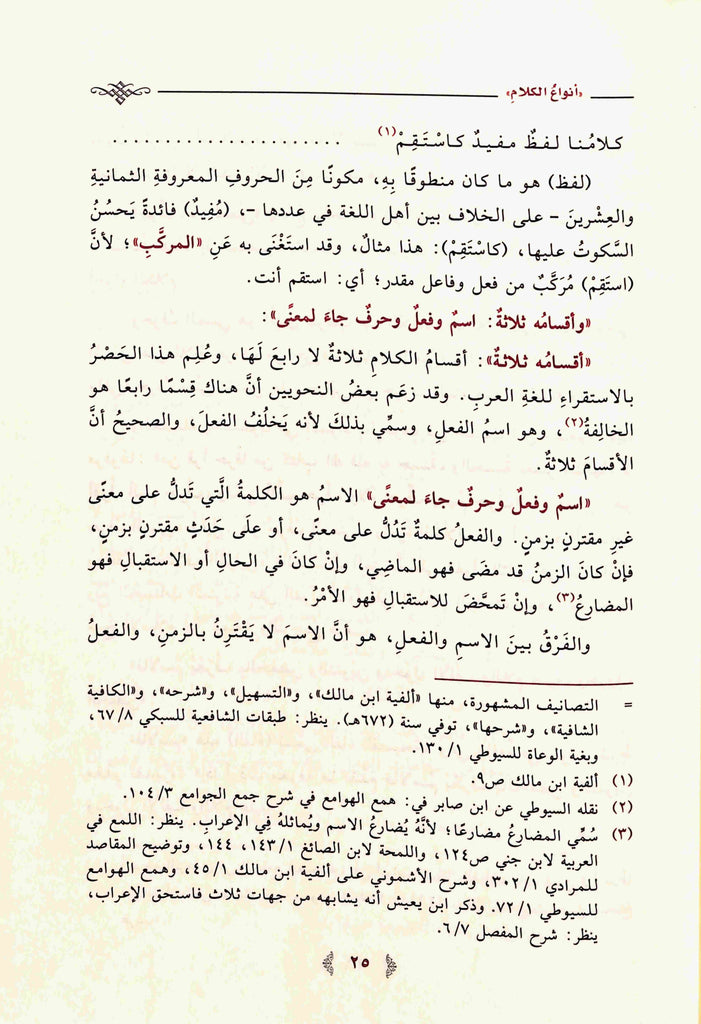 «أنواعُ الكلامِ»
كلامُنا لفظٌ مفيدٌ كاسْتَقِمْ(١) . . . . . . . . . . . . . . . . . . . . . .
(لفظ) هو ما كان منطوقًا بِهِ، مكونًا مِنَ الحروفِ المعروفةِ الثمانيةِ
والعِشْرينَ – على الخلافِ بين أهل اللغة في عددها –، (مُفِيدٌ) فائدةً يَحسُنُ
السَّكوتُ عليها، (كاسْتَقِمْ): هذا مثالٌ، وقد استَغْنَى به عَنِ «المركَّبِ»؛ لأنَّ
(استَقِمْ) مُرَكَّبٌ من فعل وفاعل مقدر؛ أي: استقم أنت.
«وأقسامُه ثلاثةٌ: اسمٌ وفعلٌ وحرفٌ جاءَ لمعنًى»:
«أقسامُه ثلاثةٌ»: أقسامُ الكلامِ ثلاثةٌ لا رابعَ لَهَا، وعُلِم هذا الحَصْرُ
بالاستقراءِ للغةِ العربِ. وقد زعَم بعضُ النحويين أنَّ هناك قِسْمًا رابعًا هو
الخالِفةُ(٢)، وهو اسمُ الفعلِ، وسمِّي بذلكَ لأنه يَخلُفُ الفعلَ، والصحيحُ أنَّ
الأقسامَ ثلاثةٌ.
«اسمٌ وفعلٌ وحرفٌ جاءَ لمعنًى» الاسمُ هو الكلمةُ الَّتي تَدلُّ على معنًى
غيرِ مقترنٍ بزمنٍ. والفعلُ كلمةٌ تَدُلُّ على معنًى، أو علَى حَدَثٍ مقترنٍ بزمنٍ،
فإنْ كانَ الزمنُ قد مضَى فهو الماضِي، وإنْ كانَ في الحالِ أو الاستقبالِ فهو
المضارعُ(٣)، وإنْ تَمحَّضَ للاستقبالِ فهو الأمْرُ.
والفَرْقُ بينَ الاسمِ والفعلِ، هو أنَّ الاسمَ لا يَقْتَرِنُ بالزمنِ، والفعلُ
= التصانيف المشهورة، منها «ألفية ابن مالك»، و«التسهيل»، و«شرحه»، و«الكافية
الشافية»، و«شرحها»، توفي سنة (٦٧٢هـ). ينظر: طبقات الشافعية للسبكي ٨/ ٦٧،
وبغية الوعاة للسيوطي ١/ ١٣٠.
(١) ألفية ابن مالك ص٩.
(٢) نقله السيوطي عن ابن صابر في: همع الهوامع في شرح جمع الجوامع ٣/ ١٠٤.
(٣) سُمِّي المضارعُ مضارعًا؛ لأنَّهُ يُضارعُ الاسم ويُماثلهُ فِي الإعرابِ. ينظر: اللمع في
العربية لابن جني ص١٢٤، واللمحة لابن الصائغ ١/ ١٤٣، ١٤٤، وتوضيح المقاصد
للمرادي ١/ ٣٠٢، وشرح الأشموني على ألفية ابن مالك ١/ ٤٥، وهمع الهوامع
للسيوطي ١/ ٧٢. وذكر ابن يعيش أنه يشابهه من جهات ثلاث فاستحق الإعراب،
ينظر: شرح المفصل ٧/ ٦.
٢٥